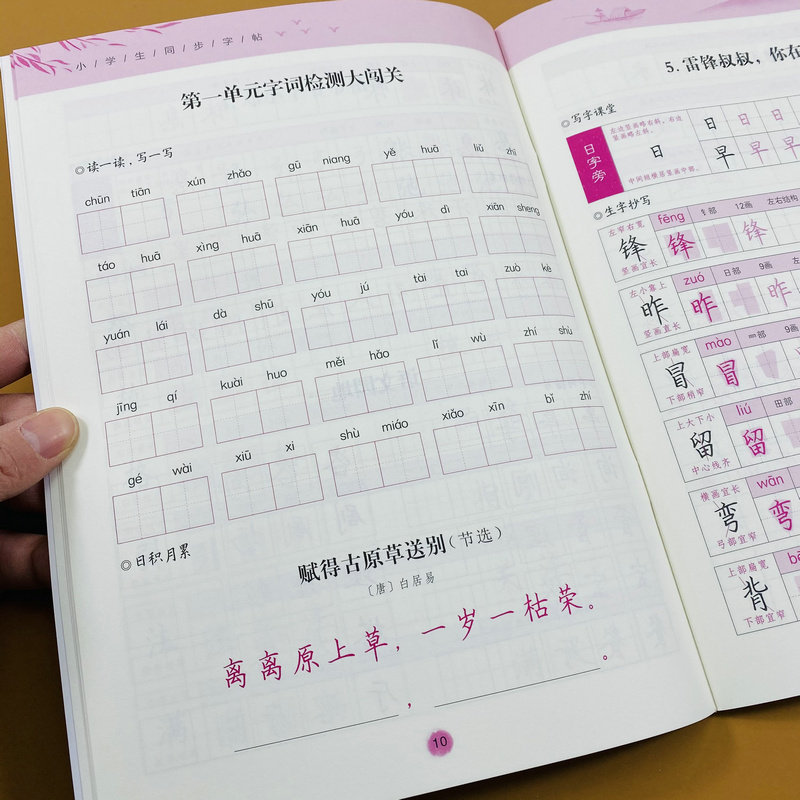 小/学/生/同/步/字/帖
第一单元字词检测大闯关
◎读一读，写一写
chūn tiān xún zhǎo gū niang yě huā liǔ zhī
táo huā xìng huā xiān huā yóu dì xiān sheng
yuán lái dà shū yóu jú tài tai zuò kè
jīng qí kuài huo měi hǎo lǐ wù zhí shù
gé wài xiū xi shù miáo xiǎo xīn bǐ zhí
◎日积月累
赋得古原草送别(节选)
〔唐〕白居易
离离原上草，一岁一枯荣。
， 。
10
5.雷锋叔叔，你在
◎写字课堂
日字旁
左边竖画略右斜，右边
竖画略左斜。
日 日 日 日
中间短横居竖画中部。
早 早 早 早
◎生字抄写
左窄右宽 fēng 钅部 12画 左右结构
锋 锋 锋
竖画宜长
左小靠上 zuó 日部 9画 左
昨 昨 昨
竖画直长
上部扁宽 mào 部 9画
冒 冒
下部稍窄
上大下小 liú 田部
留 留
中心线齐
横画宜长 wān
弯 弯
弓部宜窄
上部扁宽 bē
背
下部宜窄